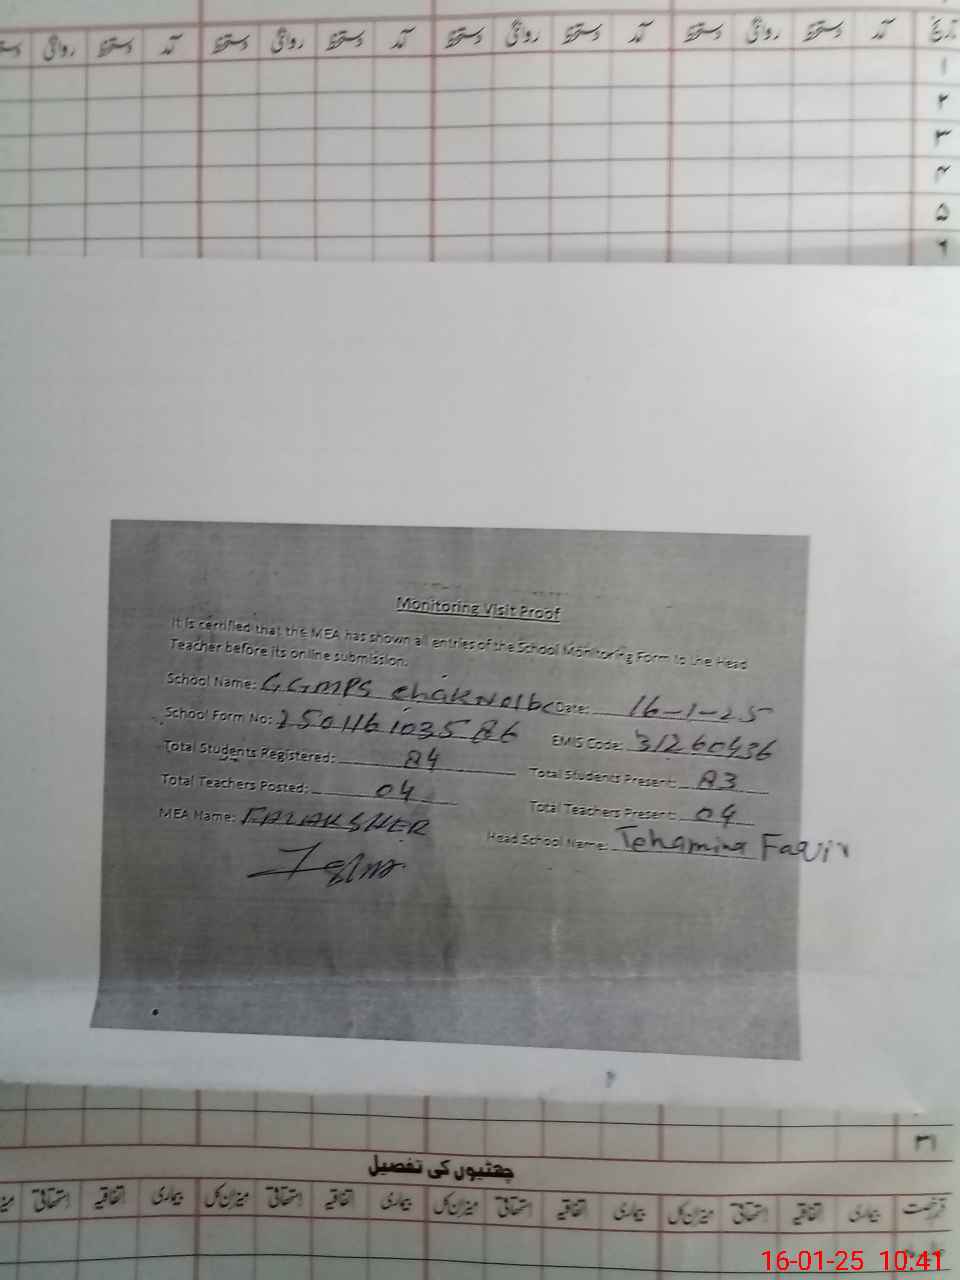 تاریخ آمد دستخط روانگی دستخط آمد دستخط روانگی دستخط آمد دستخط روانگی دستخط آمد دستخط روانگی
۱
۲
۳
۴
۵
۶
Monitoring Visit Proof
It is certified that the MEA has shown all entries of the School Monitoring Form to the Head
Teacher before its online submission.
School Name: GGMPS Date: 16-1-25
School Form No: EMIS Code: 31260436
Total Students Registered: 84 Total Students Present: 83
Total Teachers Posted: 04 Total Teachers Present: 04
MEA Name: FALAKSHER Head School Name: Tehamina
۳۱
چھٹیوں کی تفصیل
قسم رخصت بیماری اتفاقیہ استحقاقی میزان کل بیماری اتفاقیہ استحقاقی میزان کل بیماری اتفاقیہ استحقاقی میزان کل بیماری اتفاقیہ استحقاقی
16-01-25 10:41